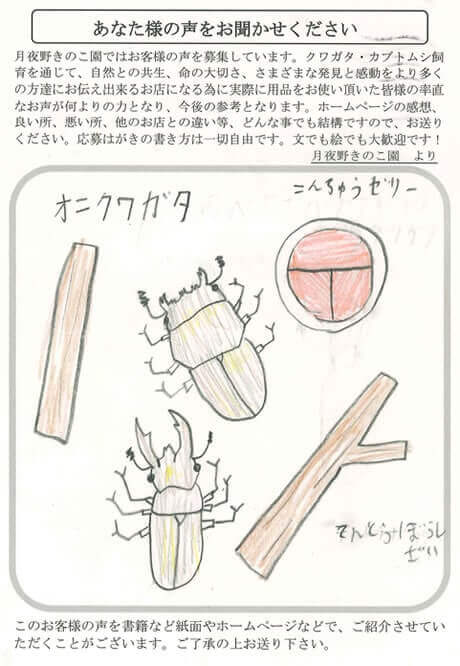 あなた様の声をお聞かせください
月夜野きのこ園ではお客様の声を募集しています。クワガタ・カブトムシ飼
育を通じて、自然との共生、命の大切さ、さまざまな発見と感動をより多く
の方達にお伝え出来るお店になる為に実際に用品をお使い頂いた皆様の率直
なお声が何よりの力となり、今後の参考となります。ホームページの感想、
良い所、悪い所、他のお店との違い等、どんな事でも結構ですので、お送り
ください。応募はがきの書き方は一切自由です。文でも絵でも大歓迎です！
月夜野きのこ園　より
オニクワガタ
こんちゅうゼリー
てんとうぼうし
ざい
このお客様の声を書籍など紙面やホームページなどで、ご紹介させてい
ただくことがございます。ご了承の上お送り下さい。